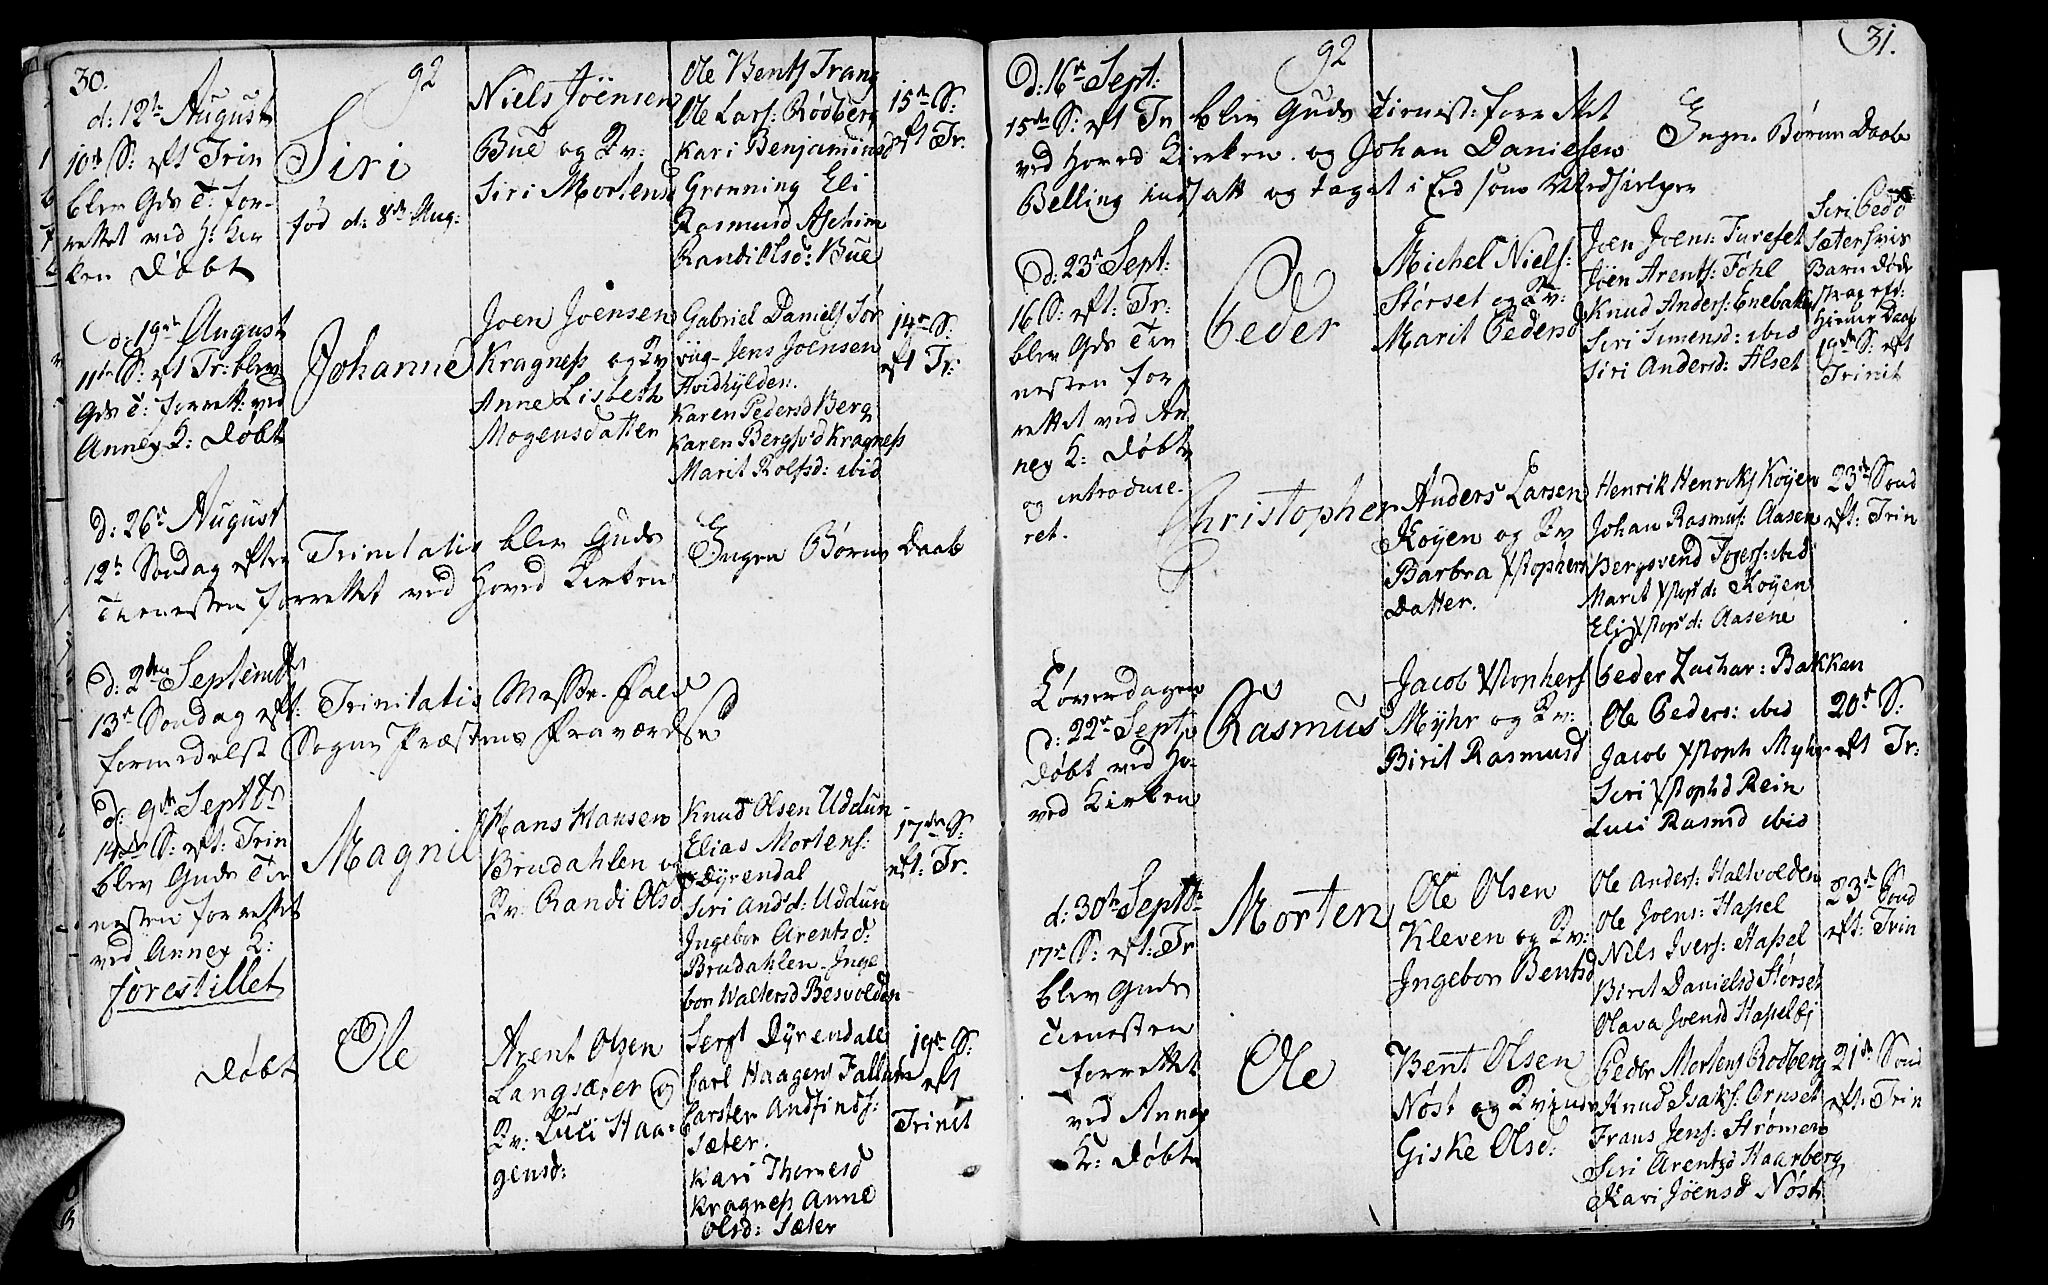 30.
92
d: 12te August
10de S: eft Trin
blev Gds T: for-
rettet vid H: Kir
ken Døbt
Siri
fød d: 8de Aug:
Niels Jöensen
Bue og Kv:
Siri Mortensd
Ole Bentss Trang
Ole Lars: Rødberg
Kari Benjaminsd
Grønning Eli
Rasmusd Aschim
Randi Olsd: Bue
15de S:
eft Tr.
d: 19de August
11te S: eft Tr: blev
Gds T: forrett: ved
Annex K: Døbt
Johanne
Joen Joensen
Kragness og Kv
Anne Lisbeth
Mogensdatter
Gabriel Daniels Sør
viig- Jens Joensen
Hvidhylden.
Karen Pedersd Berg
Karen Bergsvd Kragness
Marit Rolfsd: ibid
14de S:
eft Tr:
d: 26de August
12te Søndag efter Trinitatis blev Guds
Tienesten forrettet ved Hoved Kirken
Ingen Børne Daab
d: 2den Septembr
13de Søndag eft: Trinitatis Messe-Fald
formedelst Sogne Præstens Fraværelse
d: 9de Septbr
14de S: eft: Trin
blev Guds Tie
nesten forrettet
ved Annex K:
forestillet
Magnil
Hans Hansen
Brudahlen og
Kv: Randi Olsd
Knud Olsen Uddun
Elias Mortens:
Dyrendal
Siri Andsd: Uddun
Ingebor Arentsd:
Brudahlen- Inge
bor Waltersd Besvolden
17de S:
eft: Tr.
Døbt
Ole
Arent Olsen
Langsæter og
Kv: Luci Haa-
gensd:
Sergt Dyrendall
Carl Haagens Fallum
Carsten Andfinds:
Sæter.
Kari Thomesd
Kragness Anne
Olsd: Sæter
19de S:
eft
Trinit
31.
92
d: 16de Sept:
15de S: eft Tr blev Guds Tienest: forrettet
ved Hoved Kirken. og Johan Danielsen
Belling indsatt og taget i Eed som Medhielper
Ingen Børne Daab
d: 23de Sept:
16 S: eft: Tr:
blev Gds Tie
nesten for
rettet ved An
nex K: Døbt
og introduce-
ret.
Peder
Michel Niels:
Størset og Kv:
Marit Pedersd
Joen Joens: Fureset
Jöen Arents: Føhl
Knud Anders: Enebak
Siri Simensd: ibid
Siri Andersd: Alset
Siri Peds
Sætersvis
Barn døde
strax efter
Hieme Daab
19de S: eft
Trinit
Christopher
Anders Larsen
Koyen og Kv
Barbra Xstophers
Datter.
Henrik Henriks Koyen
Johan Rasmus: Aasen
Bergsvend Ingers: ibid:
Marit Xstopsd: Koyen
Eli Xstopsd: Aasene
23de Sønd
eft: Trin
Løverdagen
d: 22de Sept
Døbt ved Ho-
ved Kirken
Rasmus
Jacob Xstophers
Myhr og Kv:
Birit Rasmusd
Peder Zachar: Bakkan
Ole Peders: ibid
Jacob Xstoph Myhr
Siri Xstophd Rein
Luci Rasmd ibid
20de S:
eft Tr:
d: 30te Septbr
17de S: eft: Tr
blev Guds
Tienesten
forrettet
ved Annex
K: Døbt
Morten
Ole Olsen
Kleven og Kv:
Ingebor Bentsd
Ole Anders: Haltvolden
Ole Joens: Hassel
Nils Ivers: Hassel
Birit Danielsd Størset
Olava Joensd Hasselbj
23de Sønd
eft: Trin
Ole
Bent Olsen
Nøst og Kvinde
Giske Olsd:
Peder Mortens Rodberg
Knud Isaks: Ornset
Frans Jens: Strømen
Siri Arentsd Haarberg
Kari Jöensd Nøst
21de Sønd
eft: Trin